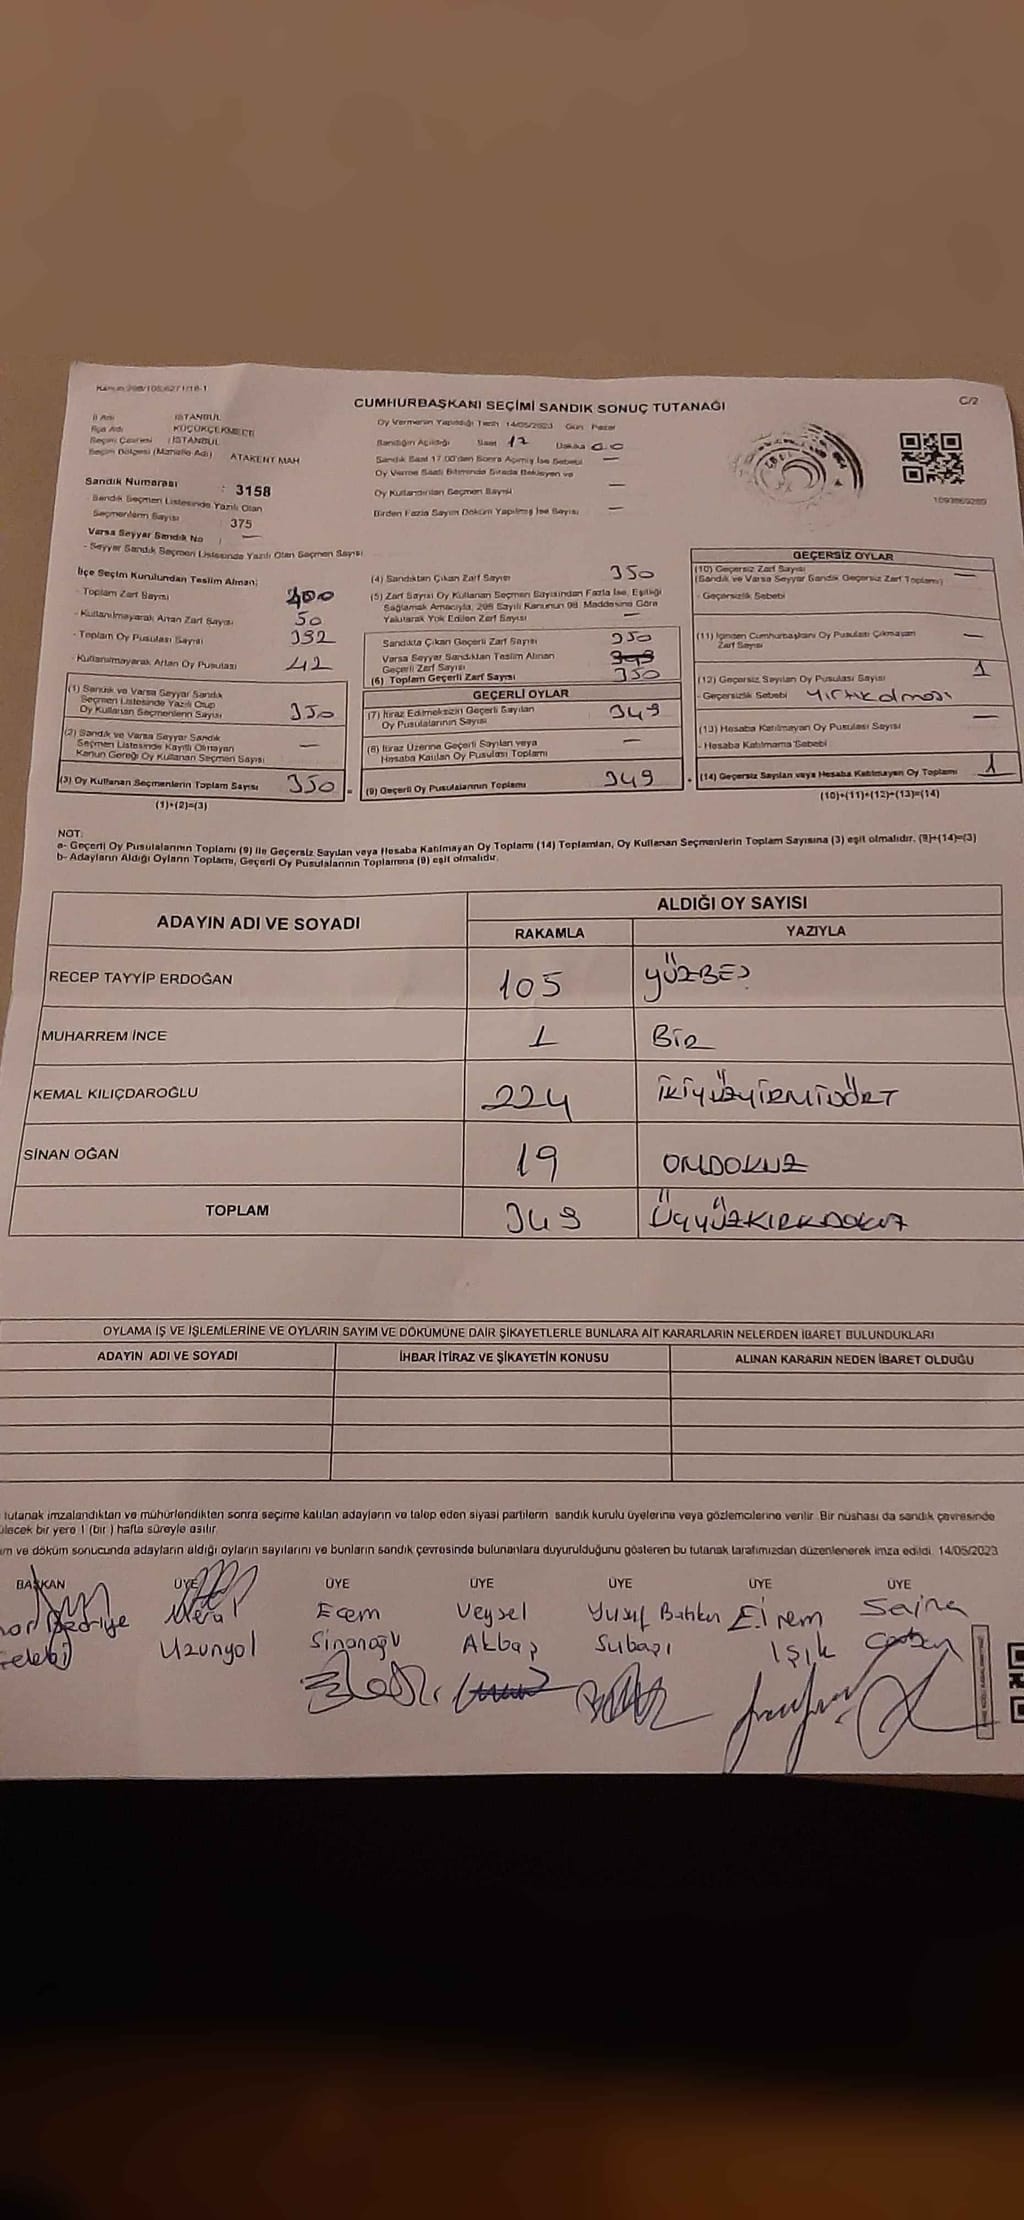 Kanun:298/105,6271/18-1
C/2
CUMHURBAŞKANI SEÇİMİ SANDIK SONUÇ TUTANAĞI
İl Adı : İSTANBUL
İlçe Adı : KÜÇÜKÇEKMECE
Seçim Çevresi : İSTANBUL
Seçim Bölgesi (Mahalle Adı) ATAKENT MAH
Sandık Numarası : 3158
- Sandık Seçmen Listesinde Yazılı Olan
Seçmenlerin Sayısı : 375
Varsa Seyyar Sandık No : —
- Seyyar Sandık Seçmen Listesinde Yazılı Olan Seçmen Sayısı
Oy Vermenin Yapıldığı Tarih 14/05/2023 Gün Pazar
Sandığın Açıldığı Saat 17 Dakika 00
Sandık Saat 17:00'den Sonra Açılmış İse Sebebi —
Oy Verme Saati Bitiminde Sırada Bekleyen ve
Oy Kullandırılan Seçmen Sayısı —
Birden Fazla Sayım Döküm Yapılmış İse Sayısı —
İlçe Seçim Kurulundan Teslim Alınan;
- Toplam Zarf Sayısı 400
- Kullanılmayarak Artan Zarf Sayısı 50
- Toplam Oy Pusulası Sayısı 392
- Kullanılmayarak Artan Oy Pusulası 42
(1) Sandık ve Varsa Seyyar Sandık
Seçmen Listesinde Yazılı Olup
Oy Kullanan Seçmenlerin Sayısı 350
(2) Sandık ve Varsa Seyyar Sandık
Seçmen Listesinde Kayıtlı Olmayan
Kanun Gereği Oy Kullanan Seçmen Sayısı —
(3) Oy Kullanan Seçmenlerin Toplam Sayısı 350
(1)+(2)=(3)
(4) Sandıktan Çıkan Zarf Sayısı 350
(5) Zarf Sayısı Oy Kullanan Seçmen Sayısından Fazla İse, Eşitliği
Sağlamak Amacıyla, 298 Sayılı Kanunun 98. Maddesine Göre
Yakılarak Yok Edilen Zarf Sayısı —
Sandıkta Çıkan Geçerli Zarf Sayısı 350
Varsa Seyyar Sandıktan Teslim Alınan
Geçerli Zarf Sayısı 349
(6) Toplam Geçerli Zarf Sayısı 350
GEÇERLİ OYLAR
(7) İtiraz Edilmeksizin Geçerli Sayılan
Oy Pusulalarının Sayısı 349
(8) İtiraz Üzerine Geçerli Sayılan veya
Hesaba Katılan Oy Pusulası Toplamı —
(9) Geçerli Oy Pusulalarının Toplamı 349
GEÇERSİZ OYLAR
(10) Geçersiz Zarf Sayısı —
(Sandık ve Varsa Seyyar Sandık Geçersiz Zarf Toplamı)
- Geçersizlik Sebebi
(11) İçinden Cumhurbaşkanı Oy Pusulası Çıkmayan
Zarf Sayısı —
(12) Geçersiz Sayılan Oy Pusulası Sayısı 1
- Geçersizlik Sebebi Yırtık olması
(13) Hesaba Katılmayan Oy Pusulası Sayısı —
- Hesaba Katılmama Sebebi
(14) Geçersiz Sayılan veya Hesaba Katılmayan Oy Toplamı 1
(10)+(11)+(12)+(13)=(14)
NOT:
a- Geçerli Oy Pusulalarının Toplamı (9) ile Geçersiz Sayılan veya Hesaba Katılmayan Oy Toplamı (14) Toplamları, Oy Kullanan Seçmenlerin Toplam Sayısına (3) eşit olmalıdır. (9)+(14)=(3)
b- Adayların Aldığı Oyların Toplamı, Geçerli Oy Pusulalarının Toplamına (9) eşit olmalıdır.
ADAYIN ADI VE SOYADI
ALDIĞI OY SAYISI
RAKAMLA YAZIYLA
RECEP TAYYİP ERDOĞAN 105 YÜZBEŞ
MUHARREM İNCE 1 BİR
KEMAL KILIÇDAROĞLU 224 İKİYÜZYİRMİDÖRT
SİNAN OĞAN 19 ONDOKUZ
TOPLAM 349 ÜÇYÜZKIRKDOKUZ
OYLAMA İŞ VE İŞLEMLERİNE VE OYLARIN SAYIM VE DÖKÜMÜNE DAİR ŞİKAYETLERLE BUNLARA AİT KARARLARIN NELERDEN İBARET BULUNDUKLARI
ADAYIN ADI VE SOYADI İHBAR İTİRAZ VE ŞİKAYETİN KONUSU ALINAN KARARIN NEDEN İBARET OLDUĞU
tutanak imzalandıktan ve mühürlendikten sonra seçime katılan adayların ve talep eden siyasi partilerin sandık kurulu üyelerine veya gözlemcilerine verilir. Bir nüshası da sandık çevresinde
ülecek bir yere 1 (bir ) hafta süreyle asılır.
ım ve döküm sonucunda adayların aldığı oyların sayılarını ve bunların sandık çevresinde bulunanlara duyurulduğunu gösteren bu tutanak tarafımızdan düzenlenerek imza edildi. 14/05/2023
BAŞKAN ÜYE ÜYE ÜYE ÜYE ÜYE ÜYE
Bedriye Meral Ecem Veysel Yusuf Batıkan İrem
Çelebi Uzunyol Sinanoğlu Akbaş Subaşı Işık